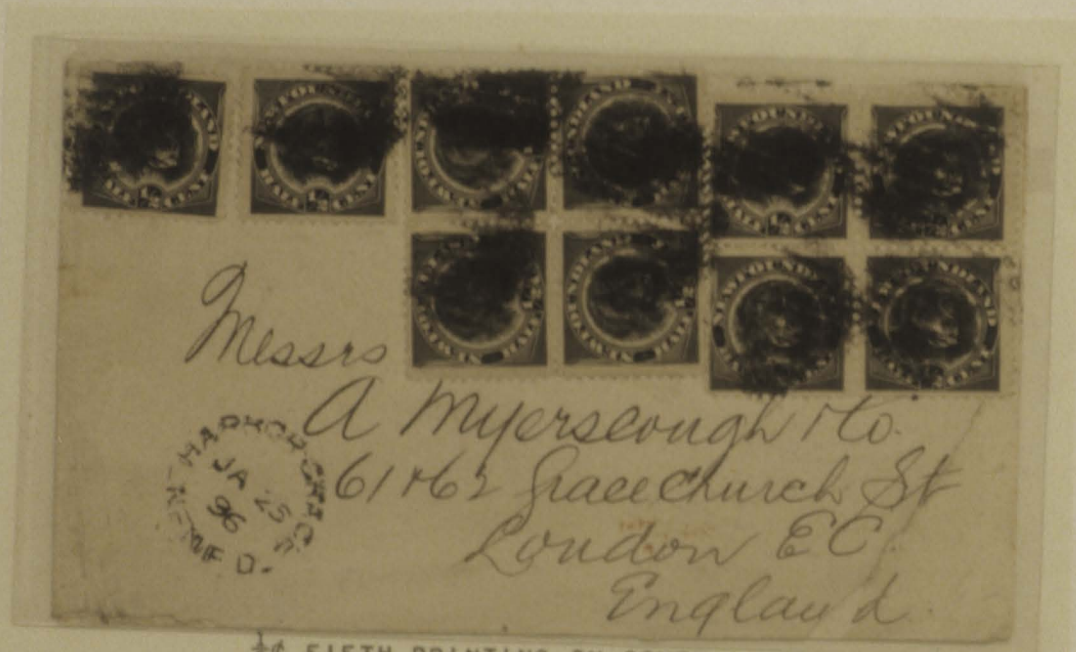 NEWFOUNDLAND
HALF 1/2 CENT
Messrs
A Myerscough & Co.
61 & 62 Gracechurch St
London EC
England
HARBOR GRACE
JA 25
96
NEWF'D.
½¢ FIFTH PRINTING